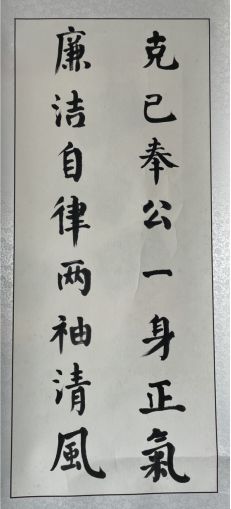 克己奉公一身正氣
廉洁自律两袖清風